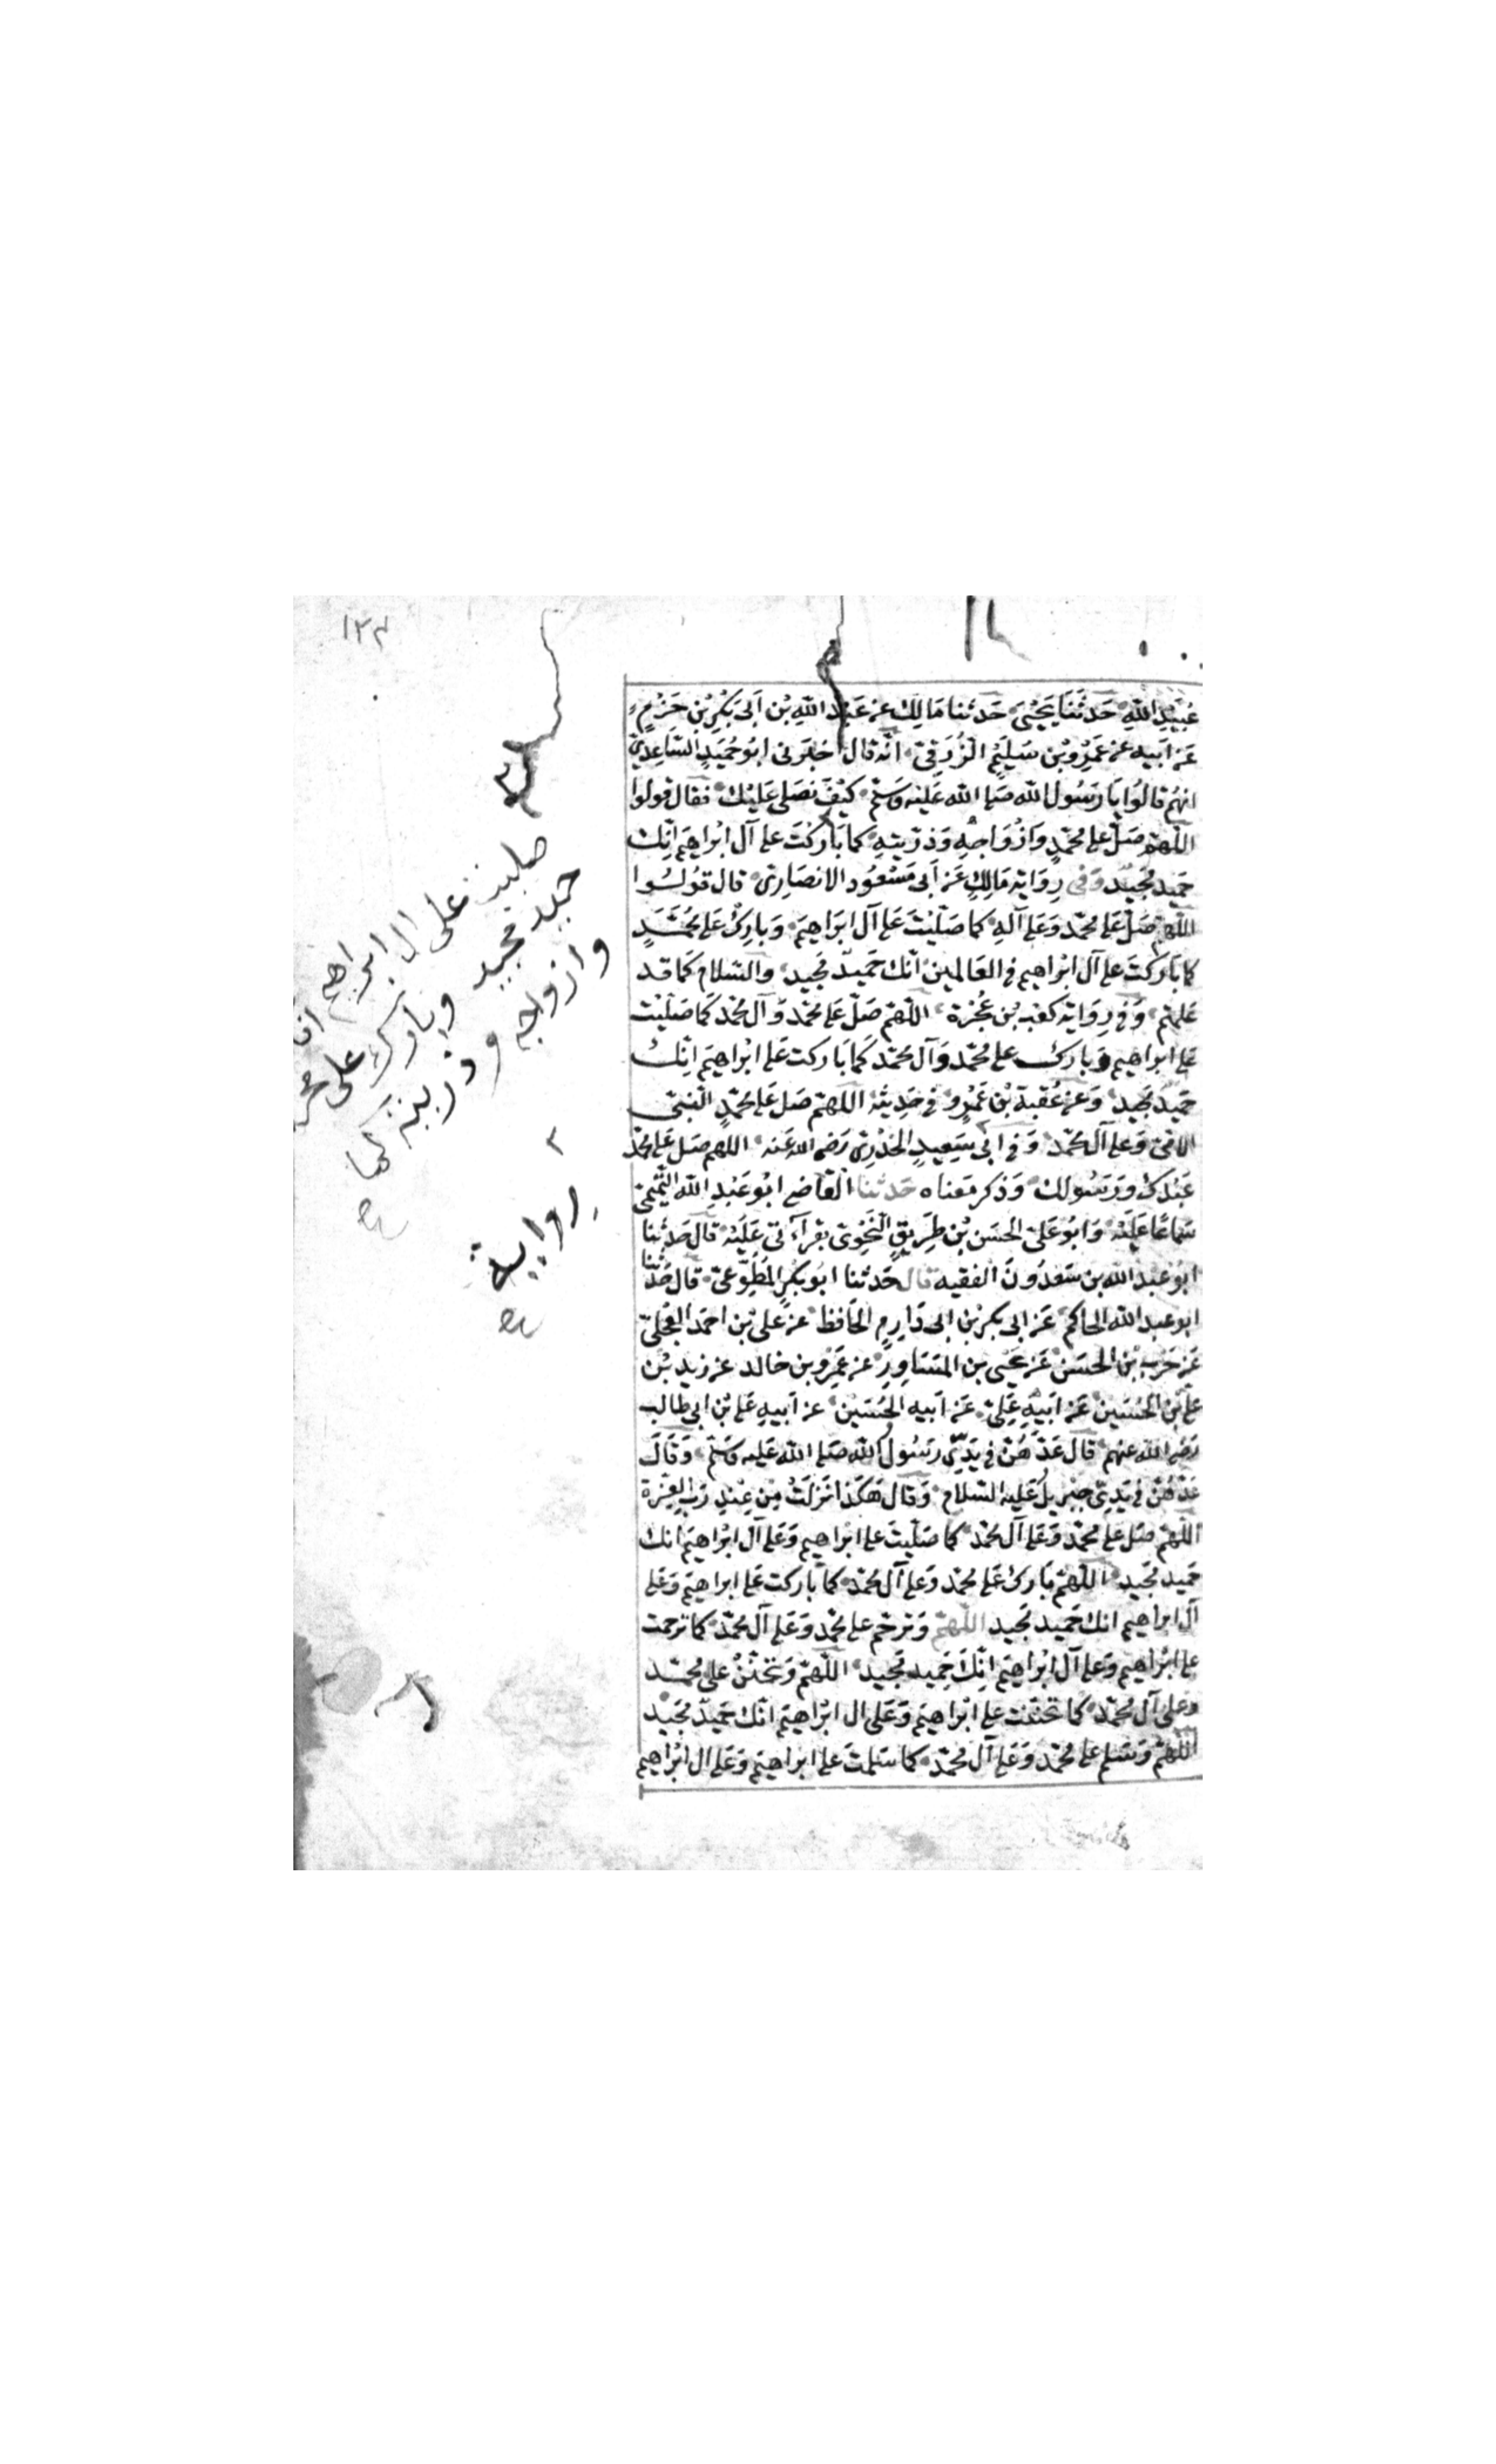 ١٣٢
عُبَيْدِ اللهِ حَدَّثَنَا يَحْيَىٰ حَدَّثنا مَالِك عَن عَبْد اللهِ بْن اَبى بَكْرِ بْن حَزْمٍ
عَن اَبيه عن عَمْرِو بْن سَلِيْمٍ الزُّرَقِىّ اَنّه قال اَخبَرنى ابُو حُمَيدٍ السَّاعِدِىّ
انهُم قالُوا يَا رَسُول الله صَلى الله عَليْه وَسَلّم كَيْفَ نصَلى عَليْك فقال قولوا
اللّهمّ صَلّ على محمّدٍ وَازْوَاجِهِ وَذرّيتهِ كما بَارَكتَ على آل ابْراهِيَم انّك
حَميد مَجيْد وَفى رِوَاية مَالِكٍ عَن اَبى مَسْعُود الانصَارىّ قال قوُلُوا
اللّهمّ صَلّ عَلى محمّد وَعَلى آلهِ كما صَلّيْتَ عَلى آل ابرَاهِيَم وَبارِكْ عَلى محُمَّدٍ
كما بَارَكْتَ على آل ابْراهِيم فى العَالمينَ انّك حَميدٌ مَجيد والسّلام كَما قد
عَلمتم وَفى رِوَاية كعْب بْن عُجْرَة اللّهمّ صَلّ عَلى محمّد وَآل محمّد كَما صَلّيْت
عَلى ابرَاهِيم وَبارك على محمّد وَآل محمّد كَما بَاركت عَلى ابْراهِيَم انّكْ
حَميْدٌ مَجيد وَعن عُقْبة بْن عَمْرٍو فى حَدِيثهْ اللّهمّ صَل عَلى محمّدٍ النّبىّ
الامّىّ وَعلى آل محمّد وَفى ابى سَعِيدٍ الخدْرِىّ رَضى الله عَنه اللهم صَل عَلى محمّد
عَبْدك وَرَسُولك وَذكر مَعناه حَدثنا القاضى ابُو عَبْدِ الله التّمِيْمىّ
سَماعًا عَليْهْ وَابُو عَلىّ الحُسَن بْن طَرِيقٍ النّحْوِىّ بقرآءَتى عَليْه قال حَدثنا
ابُو عَبْد الله بن سَعدُونَ الفقيه قال حَدثنا ابُو بَكْرٍ المُطّوِّعىّ قال حَدّثنا
ابو عبد الله الحاكم عَن ابى بكر بْن ابى دَارِمٍ الحَافظ عن عَلى بْن احمَد العِجْلىّ
عَن حَرْب بْن الحَسَن عَن يَحْيى بن المسَاوِرِ عن عَمْرِو بن خالد عن زيد بْن
عَلى بْن الحُسَين عَن اَبيْهِ عَلِىّ عَن اَبيه الحُسَيْن عن اَبيهِ عَلى بْن ابى طالب
رَضى الله عنهم قال عَدّهُنّ فى يَدِىّ رَسُول الله صَلى الله عَليه وَسَلّم وَقَالَ
عَدّهُنّ فى يَدِىّ جبْرِيلُ عَليْه السّلام وَقال هَكذا نَزلَتُ مِن عِنْدِ رَبّ العِزّة
اللّهمّ صَل على محمّد وَعَلى آل محمّد كما صَليْتَ على ابْراهِيم وَعَلى آل ابْراهِيَم انّك
حَميد مَجيد اللّهمّ بَاركْ عَلى محمّد وَعلى آل محمّد كما بَاركت عَلى ابراهِيَم وَعَلى
آل ابراهيم انك حَميد مَجيد اللّهمّ وَترحّم على محمّد وَعَلى آل محمّد كما ترحمت
على ابْراهِيم وَعلى آل ابْراهِيَم انّكَ حَميد مَجيد اللّهمّ وَتحَنّنْ على محُمّد
وعلى آل محمّد كما تحَنّنت على ابْراهِيَم وَعَلى ال ابْراهِيَم انّك حَميدٌ مَجيد
اللّهمّ وَسَلم على محمّد وَعَلى آل محمّد كما سَلمتَ عَلى ابراهِيَم وَعَلى ال ابْراهِيم
صليت على ال ابراهيم
حميد مجيد وبارك على
وازواجه وذريته كما
صح
٢
رواية
صح